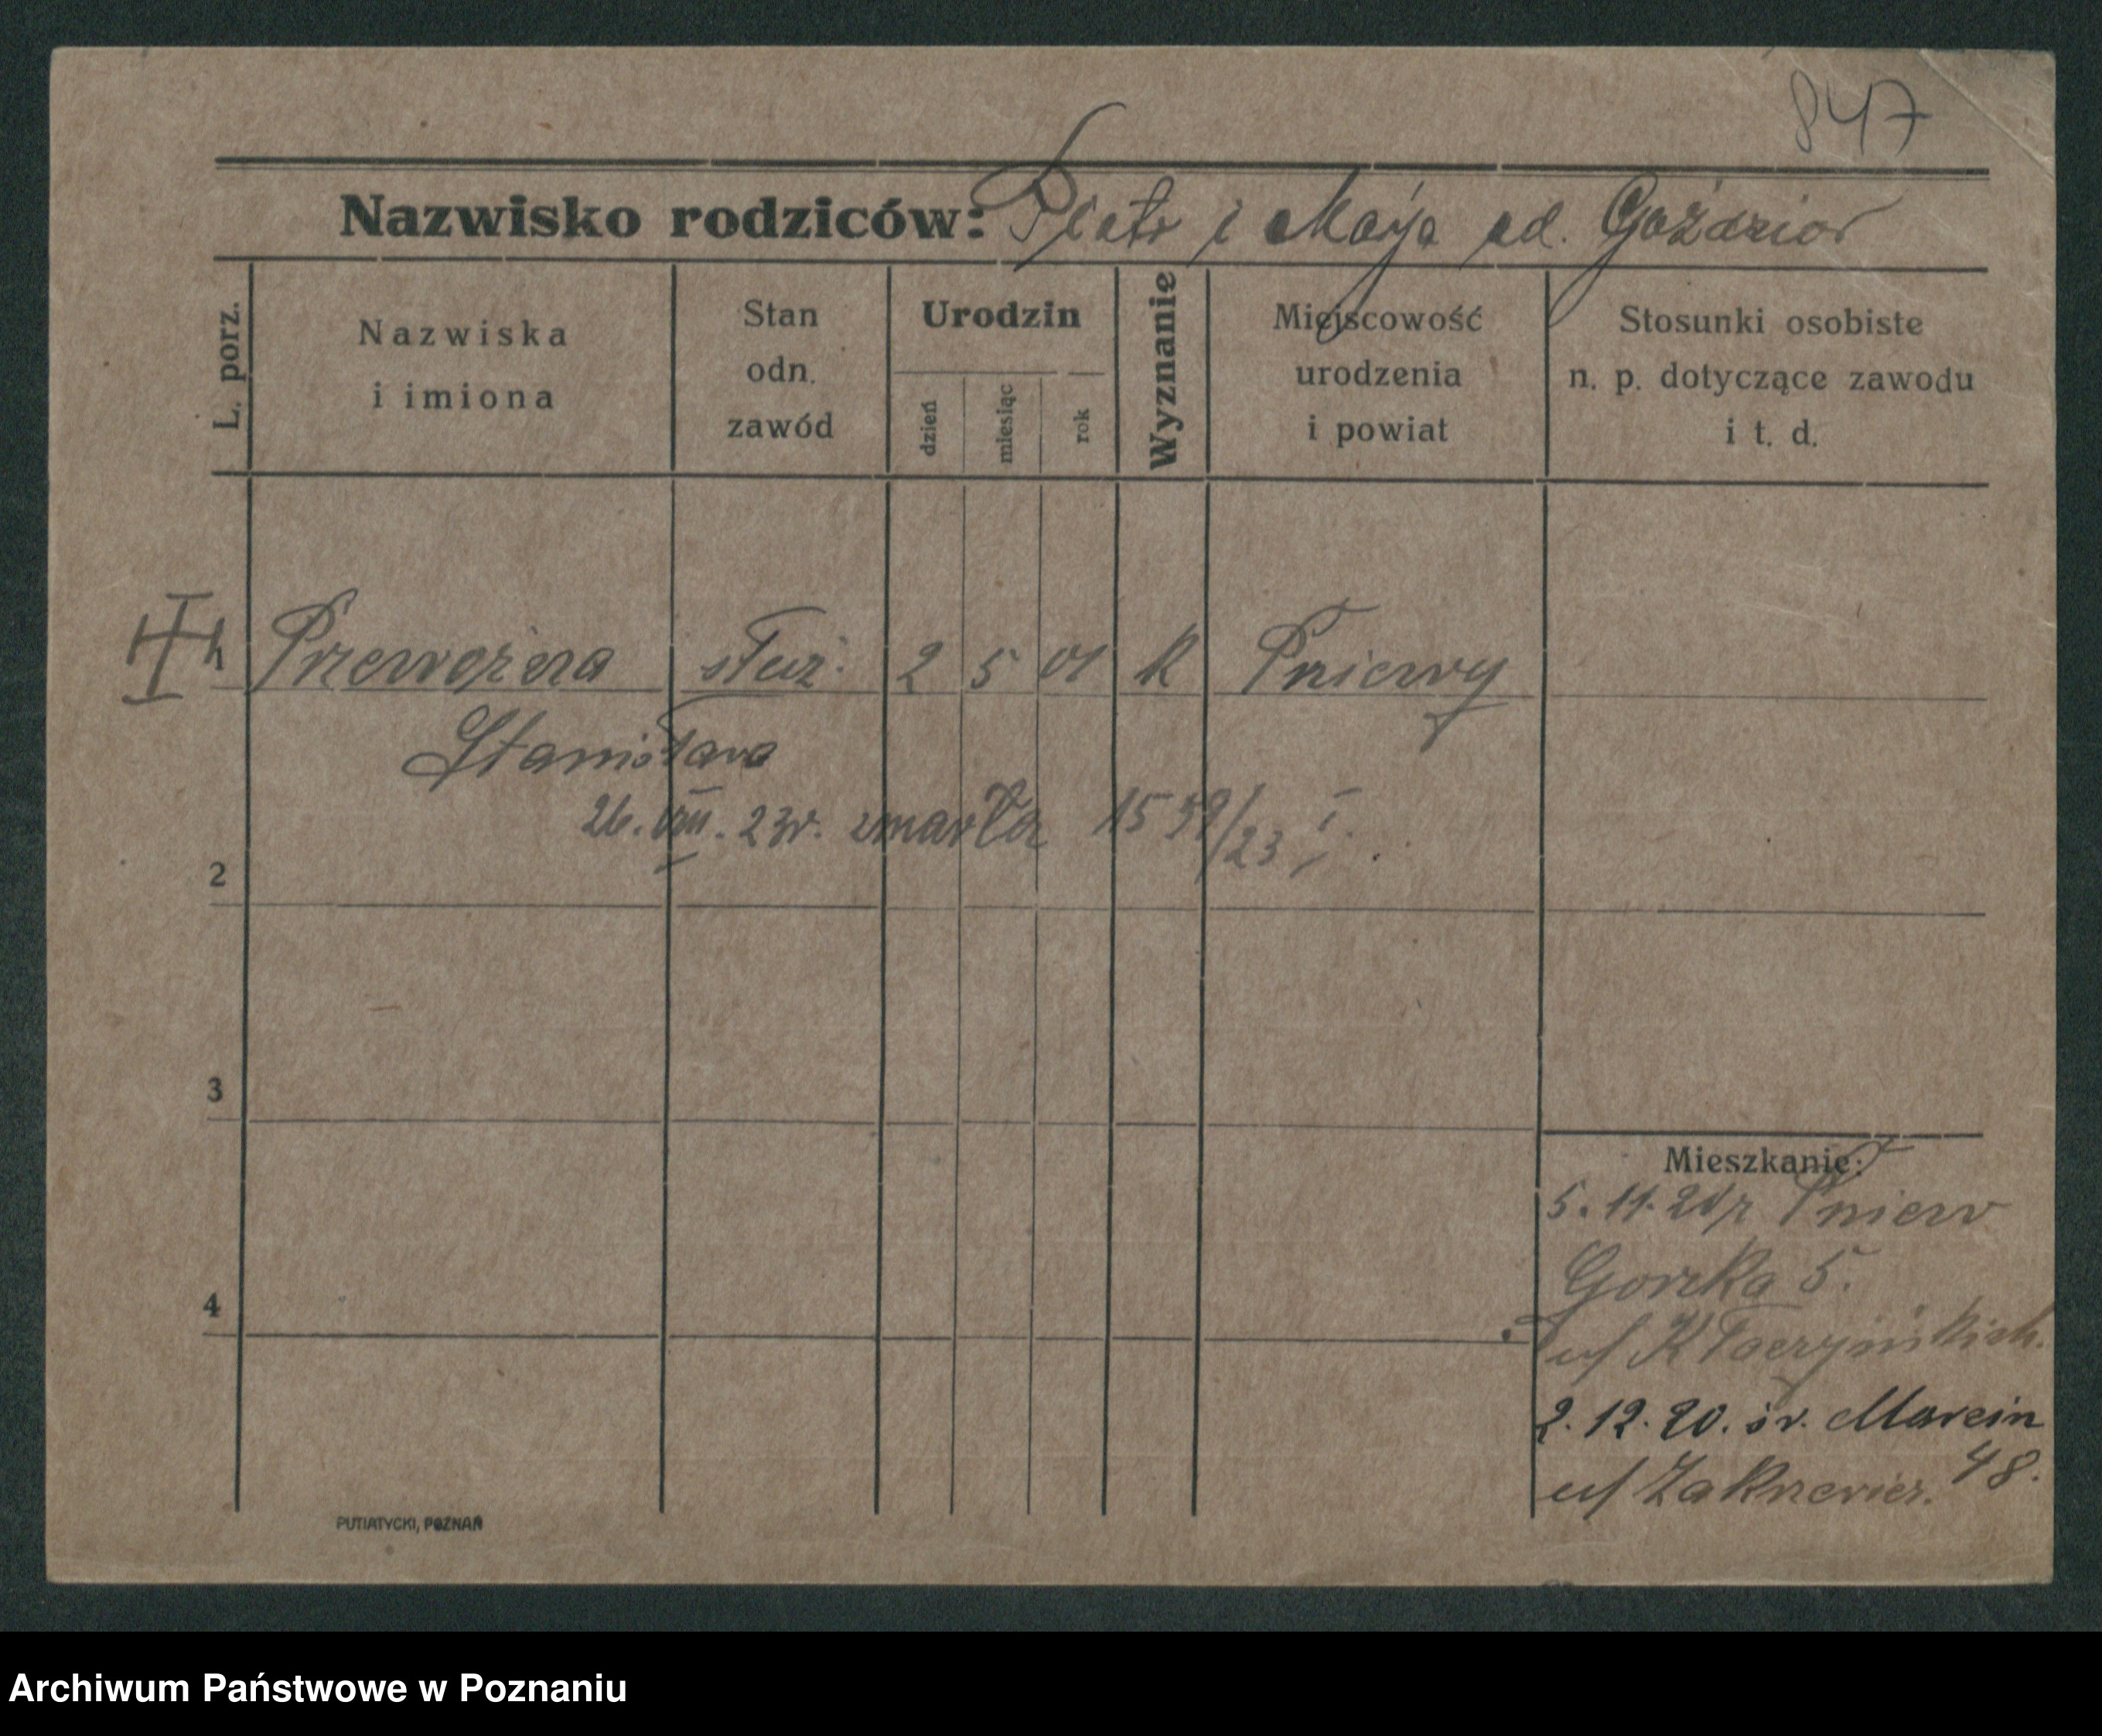 847
Nazwisko rodziców: Piotr i Marja od. Goździor
L. porz.
Nazwiska
i imiona
Stan
odn.
zawód
Urodzin
dzień
miesiąc
rok
Wyznanie
Miejscowość
urodzenia
i powiat
Stosunki osobiste
n. p. dotyczące zawodu
i t. d.
Przewoźna służ. 2 5 01 k Pniewy
Stanisława
26. VIII. 23r. zmarła 1539/23 I.
2
3
4
Mieszkanie:
5. 11. 20r Pniew
Gorzka 5.
u/ Kłaczyńskich.
2. 12. 20. św. Marcin
48.
u/ Zakrzewicz.
PUTIATYCKI, POZNAŃ
Archiwum Państwowe w Poznaniu